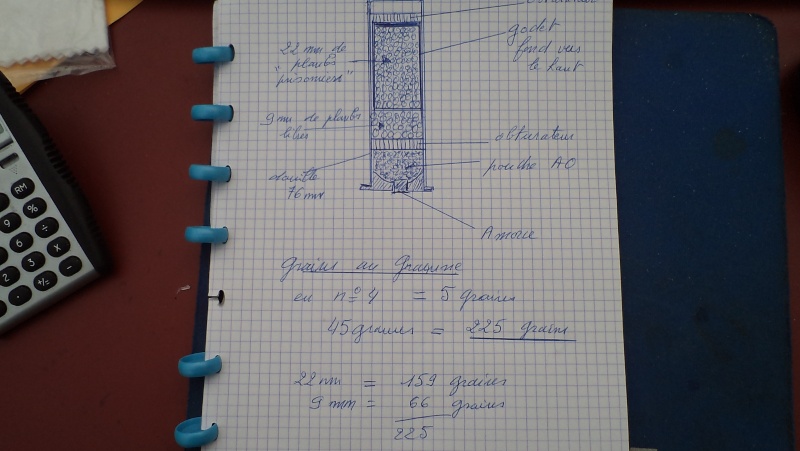 obturateur
godet
fond vers
le haut
22 mm de
plombs
"prisonniers"
9 mm de plombs
libres
obturateur
poudre AO
douille
76 mm
Amorce
Grains au Gramme
en n° 4 = 5 grains
45 grammes = 225 grains
22 mm = 159 graines
9 mm = 66 graines
225
RM
9
%
÷
6
√
X
5
2
3
-
0
·
+/=